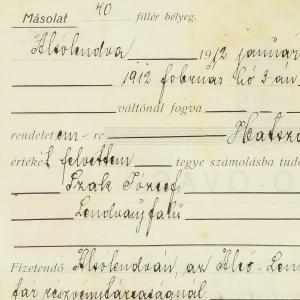 Másolat 40 fillér bélyeg.
Alsólendva 1912 január
1912 február hó 3-án
váltónál fogva
rendeletem-re Hatszá
értékét felvettem tegye számolásba tudó
Szak József
Lendvaujfalu
Fizetendő Alsólendván, az Alsó-Lend
tár részvénytársaságnál